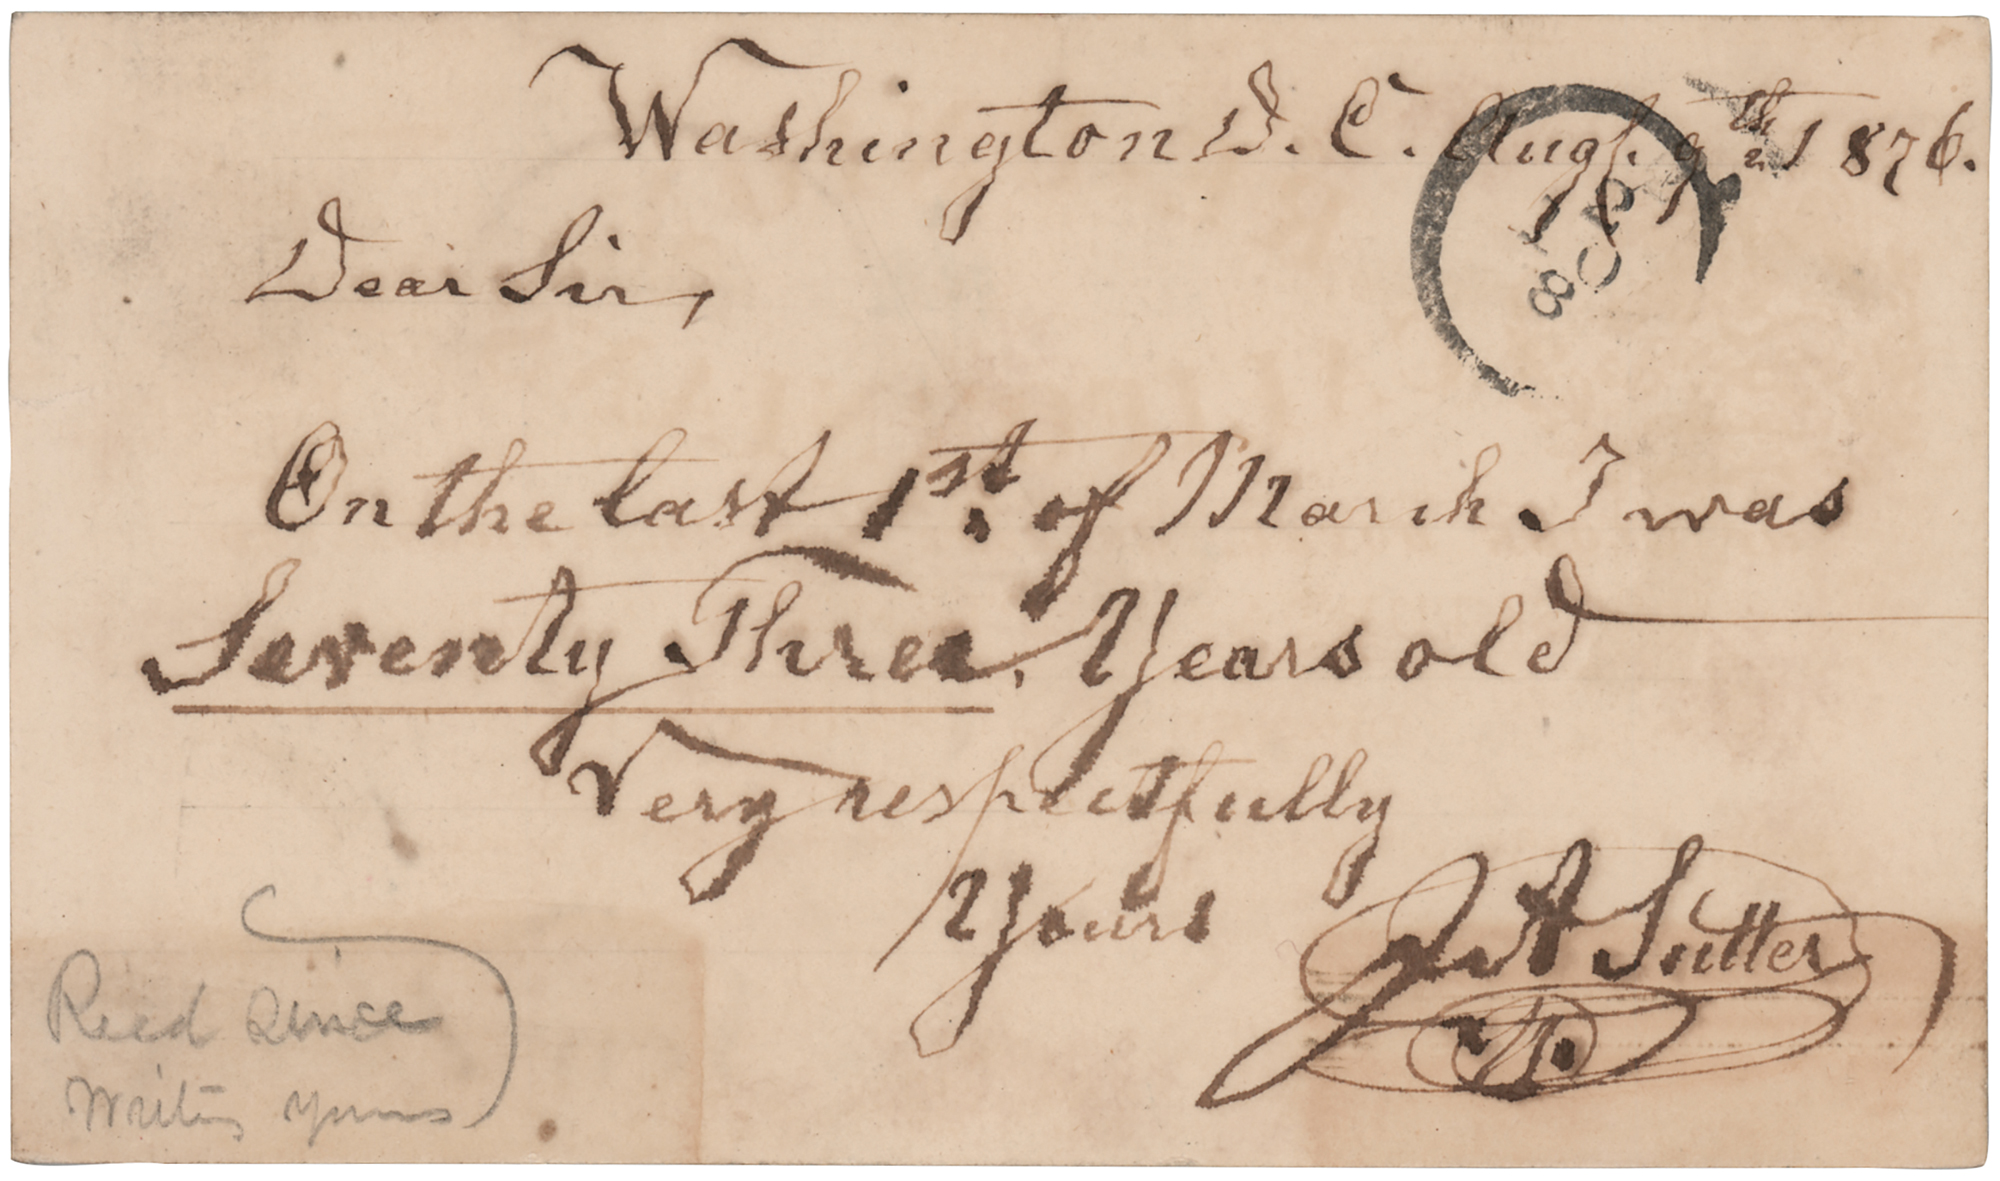 Washington D. C. Augt. 9th 1876.
Dear Sir,
On the last 1st. of March I was
Seventy Three, Years old
Very respectfully
Yours
J A Sutter
Recd since
writing yours